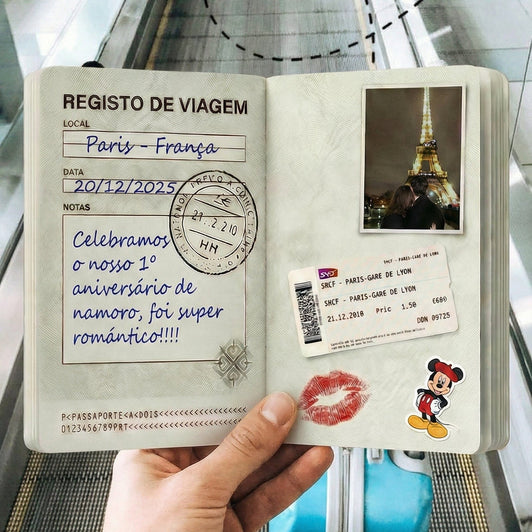 REGISTO DE VIAGEM
LOCAL
Paris - França
DATA
20/12/2025
NOTAS
Celebramos
o nosso 1º
aniversário de
namoro, foi super
romântico!!!!
21.2.210
HH
P<PASSAPORTE<A<DOIS<<<<<<<<<<<<<<<
0123456789PRT<<<<<<<<<<<<<<<<<<
SRCF - PARIS-GARE DE LYON
SRCF - PARIS-GARE DE LYON
21.12.2010 Pric 1.50 €600
DDN 09725